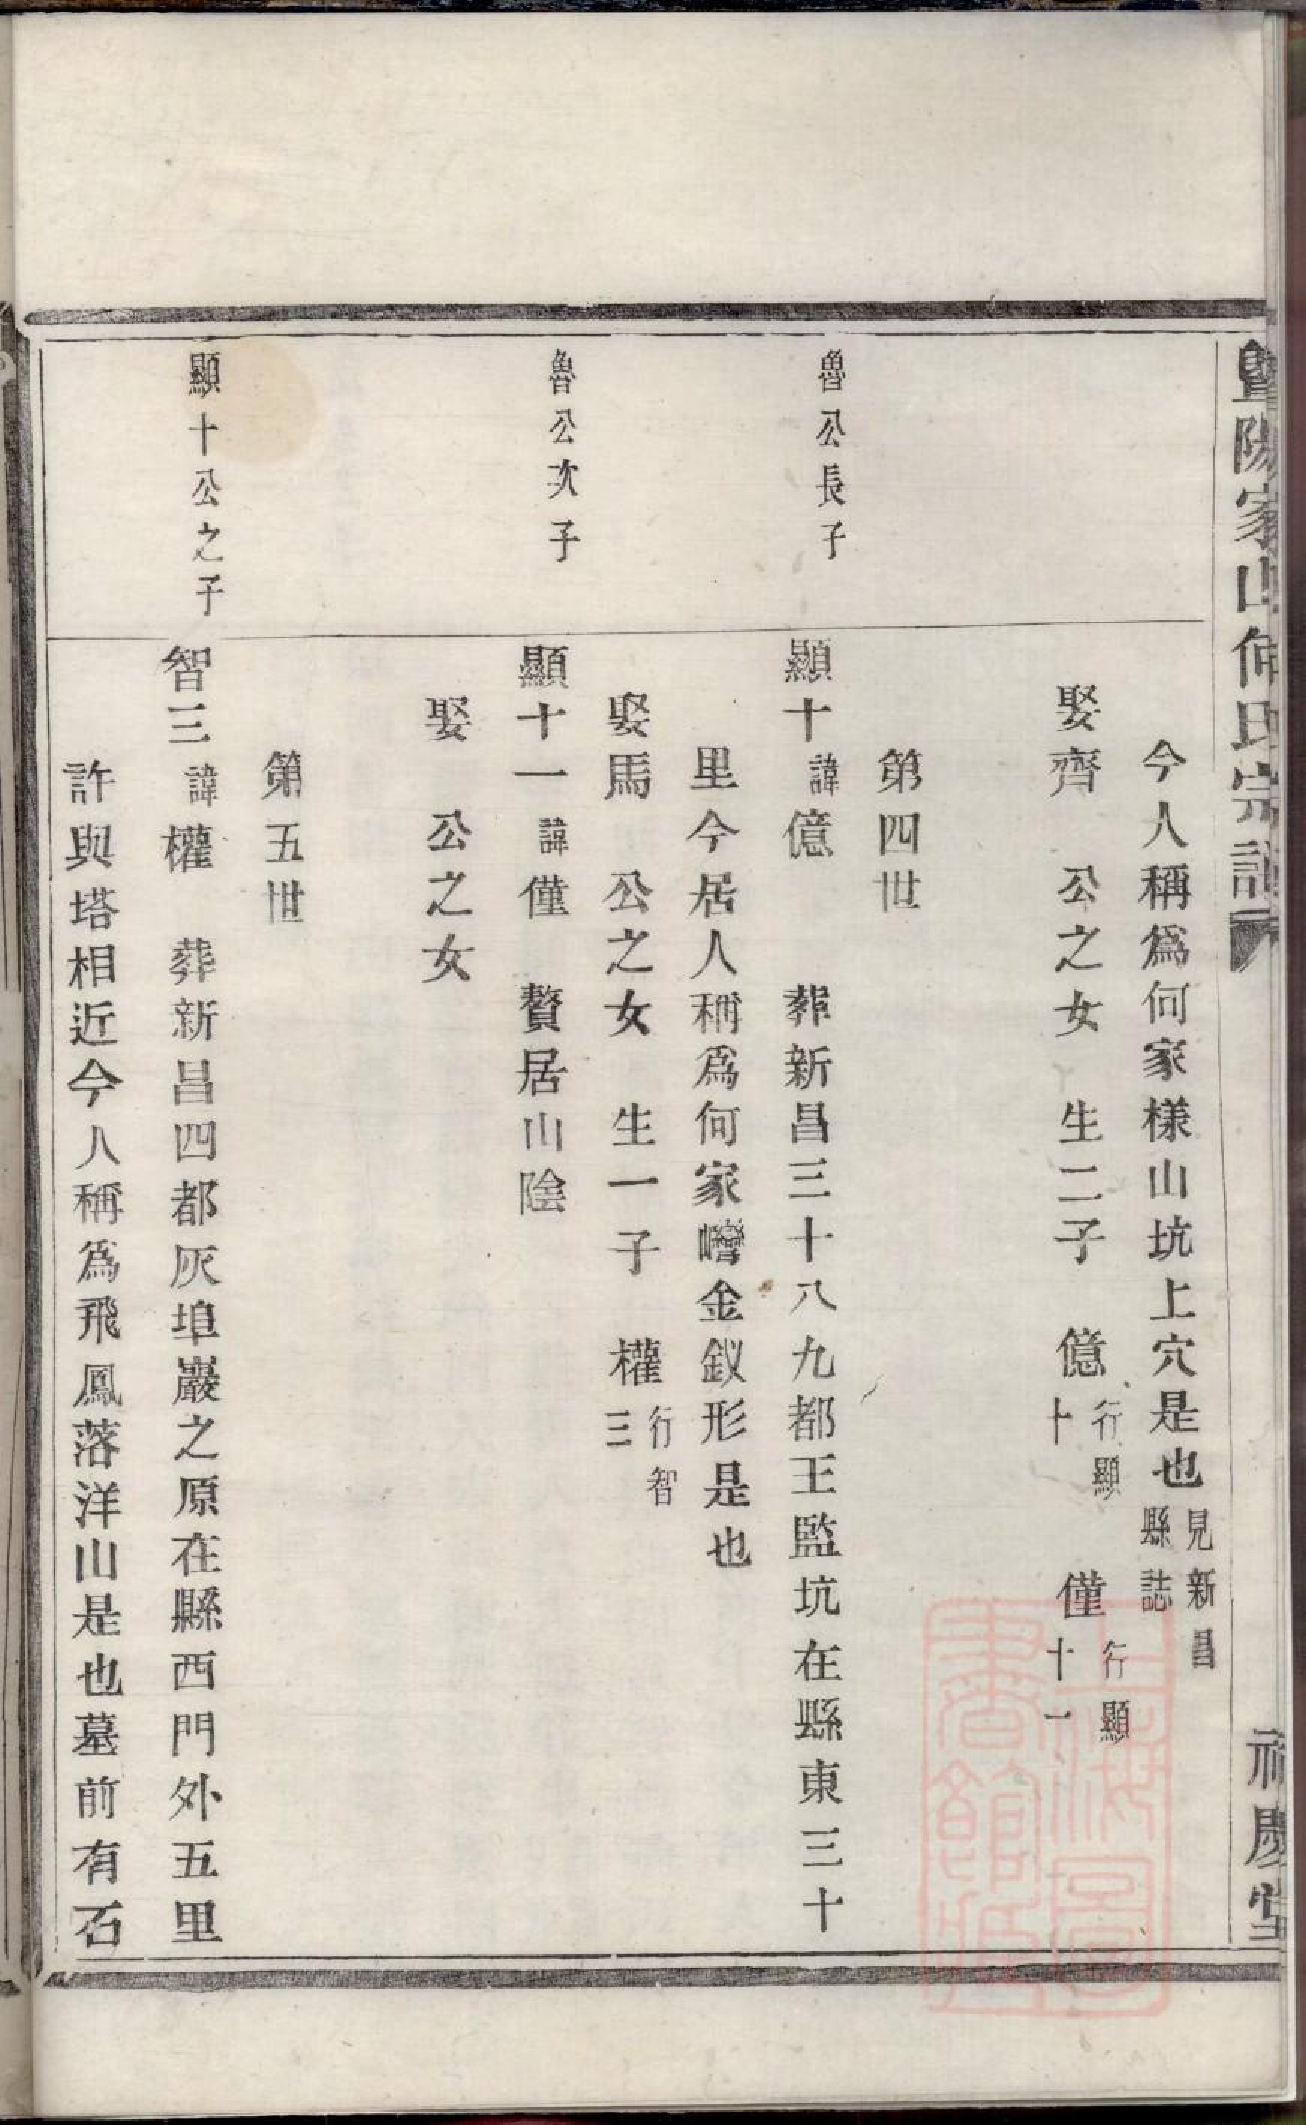 暨陽家山何氏宗譜
祠慶堂
今人稱爲何家樣山坑上穴是也見新昌縣誌
娶齊 公之女 生二子 億行顯十 僅行顯十一
第四世
魯公長子
顯十諱億 葬新昌三十八九都王監坑在縣東三十
里今居人稱爲何家金釵形是也
娶馬 公之女 生一子 權行智三
魯公次子
顯十一諱僅 贅居山陰
娶 公之女
第五世
顯十公之子
智三諱權 葬新昌四都灰埠巖之原在縣西門外五里
許與塔相近今人稱爲飛鳳落洋山是也墓前有石
上海圖書館藏